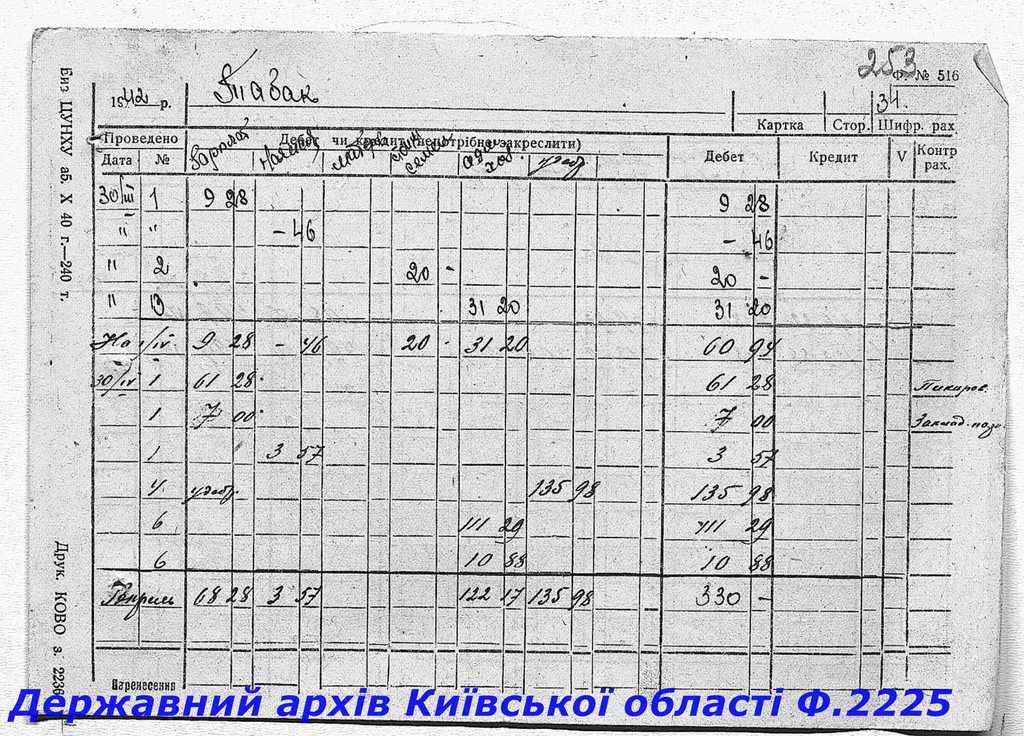 253
Ф. № 516
1942 р. Табак
34.
Картка Стор. Шифр. рах.
Проведено Дебет чи кредит (непотрібне закреслити)
Дата № Зарплат Начисл удобр Дебет Кредит V Контр рах.
30/III 1 9 28 9 28
" " - 46 - 46
" 2 20 - 20 -
" 3 31 20 31 20
На 1/IV 9 28 - 46 20 - 31 20 60 94
30/IV 1 61 28 61 28
1 7 00 7 00
1 3 57 3 57
4 удобр. 135 98 135 98
6 111 29 111 29
6 10 88 10 88
68 28 3 57 122 17 135 98 330 -
Перенесення
Биз ЦУНХУ аб. X 40 г.—240 т.
Друк. КОВО з. 2236
Державний архів Київської області Ф.2225